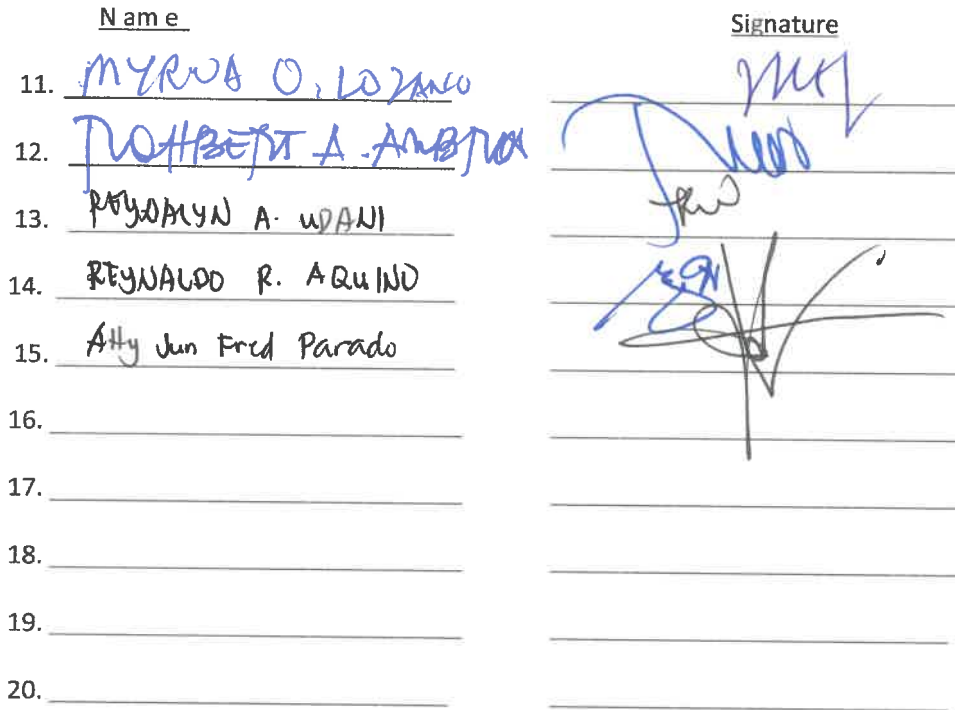 Name Signature
11. MYRNA O. LOZANO
12. ROHBERT A. AMBROS
13. REYDALYN A. UDANI
14. REYNALDO R. AQUINO
15. Atty Jun Fred Parado
16.
17.
18.
19.
20.